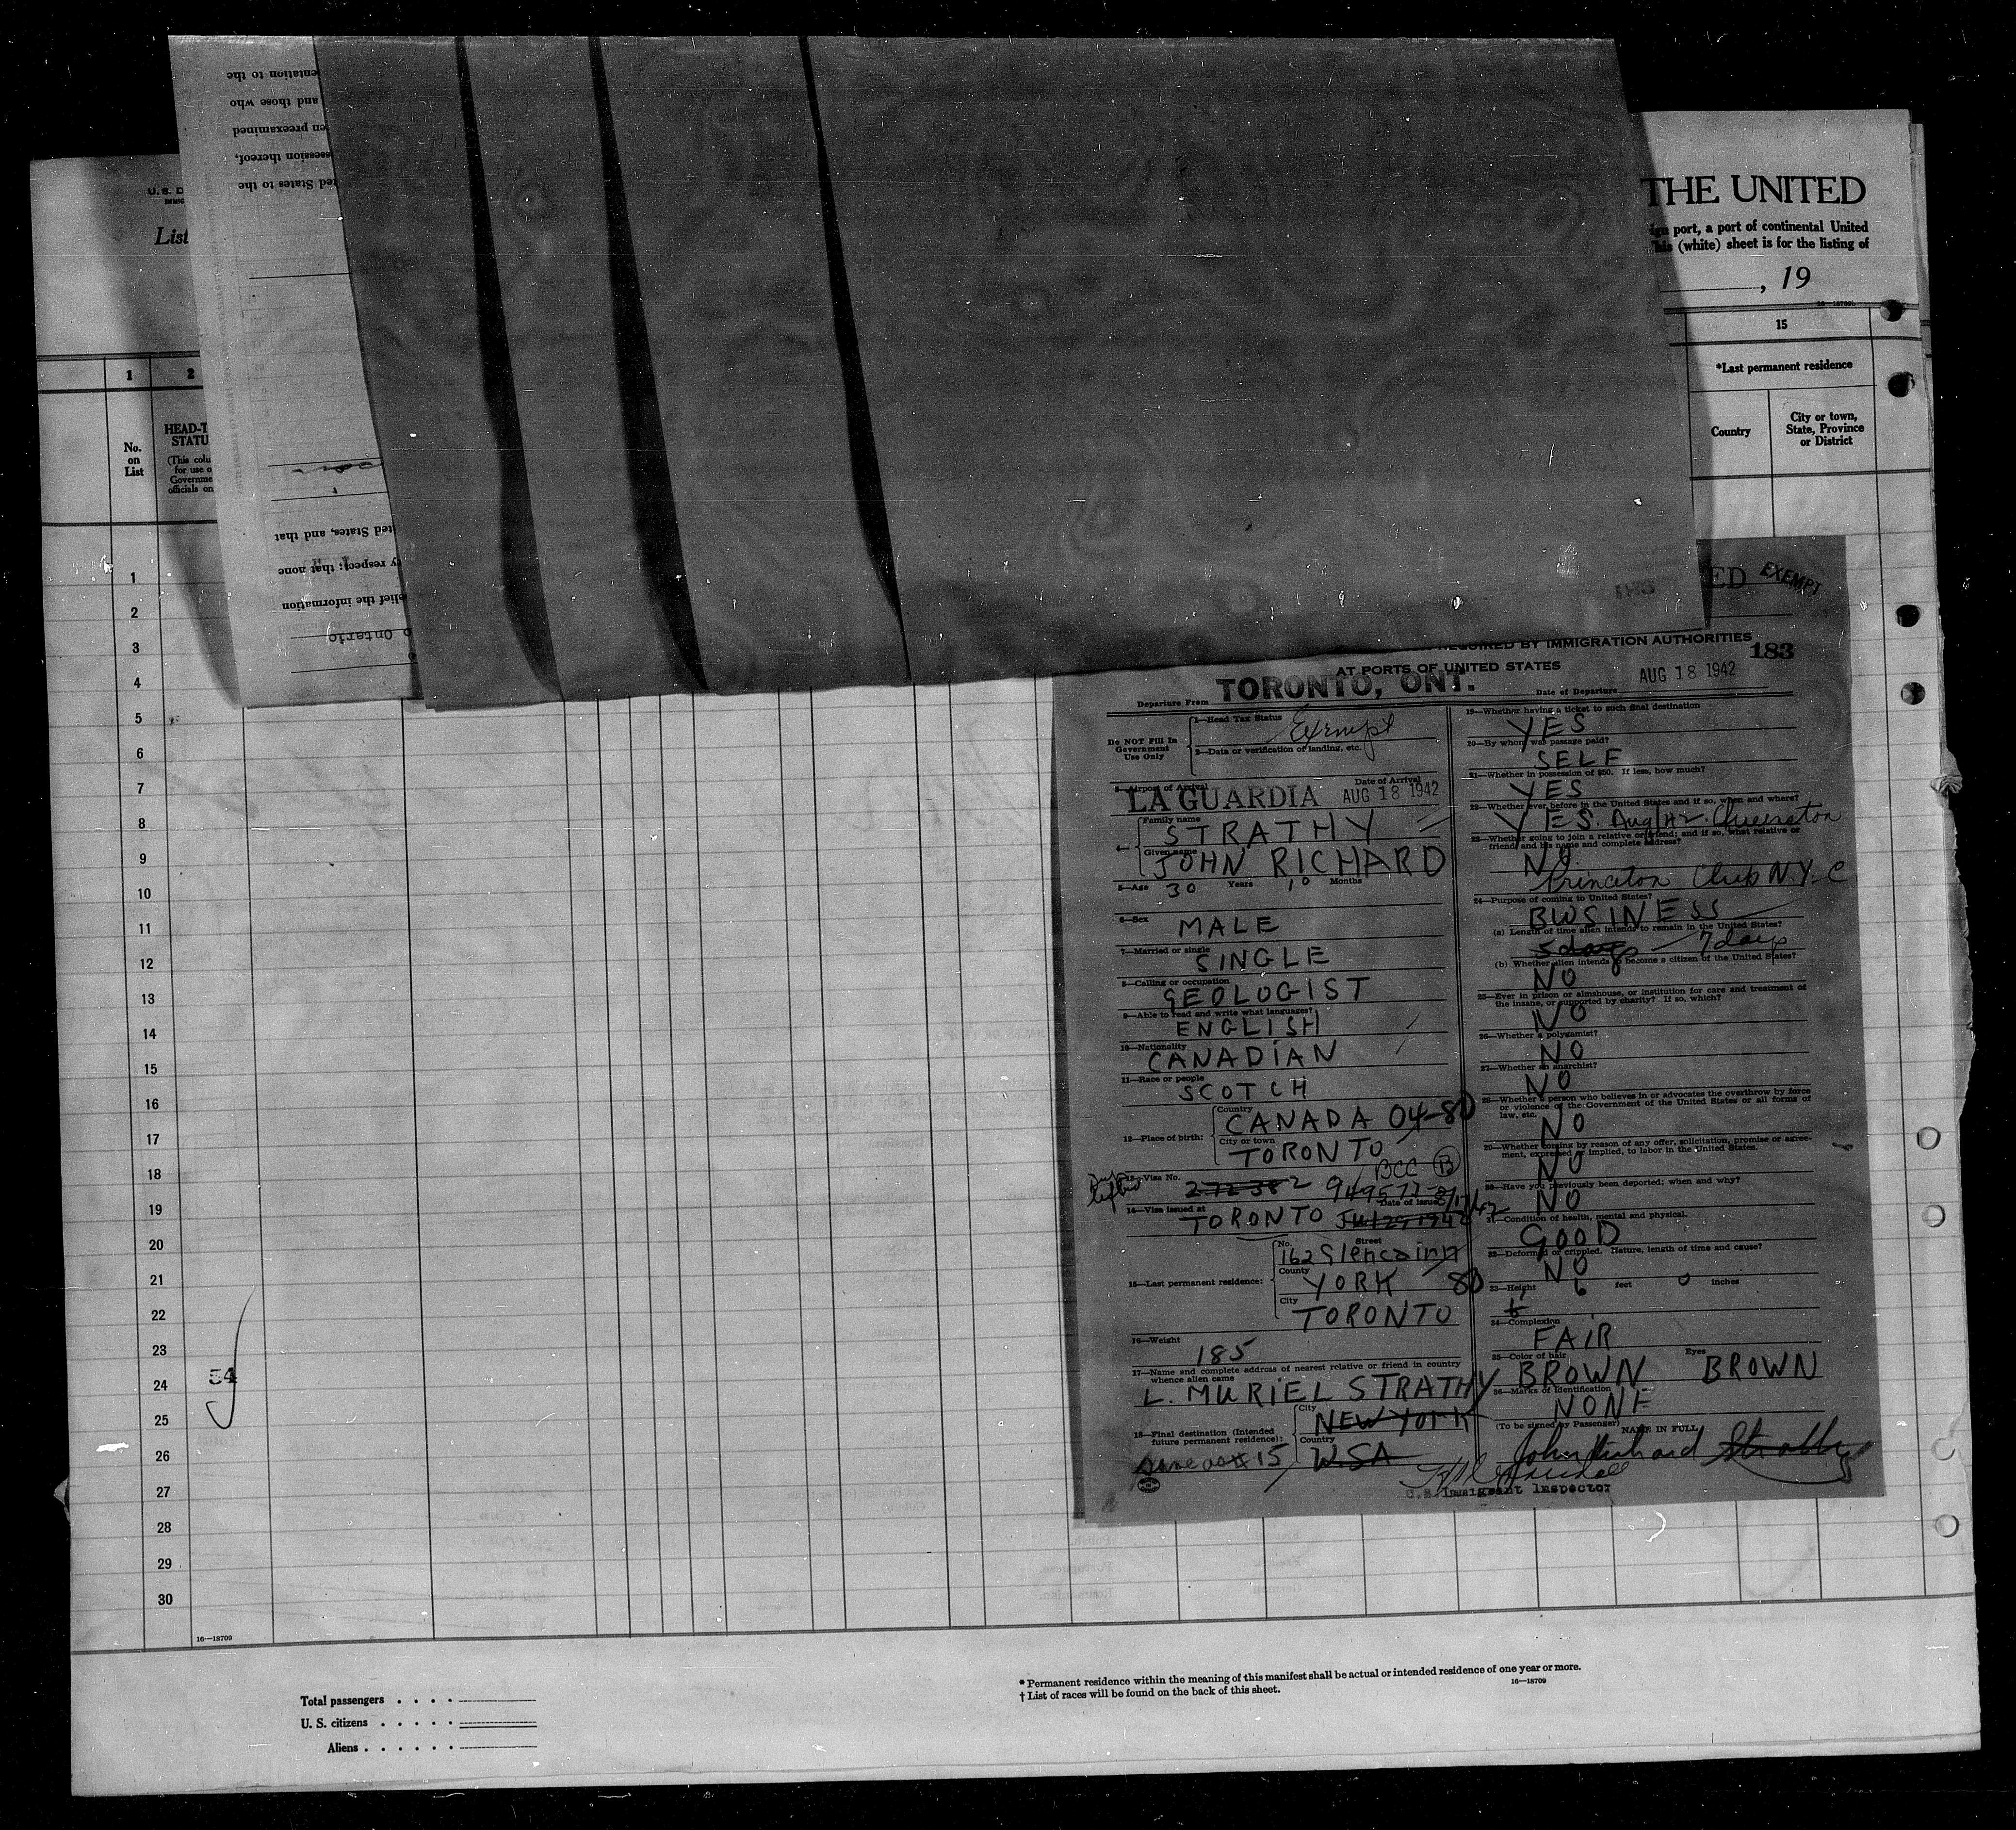 U. S. D
IMMIG
List
THE UNITED
ign port, a port of continental United
This (white) sheet is for the listing of
, 19
16—18709
entation to the
and those who
en preexamined
ssession thereof,
ted States to the
ted States, and that
y respect; that none
elief the information
o Ontario
1
2
15
*Last permanent residence
No.
on
List
HEAD-T
STATU
(This colu
for use o
Governme
officials on
Country
City or town,
State, Province
or District
1
2
3
4
5
6
7
8
9
10
11
12
13
14
15
16
17
18
19
20
21
22
23
24
25
26
27
28
29
30
54
16—18709
ED EXEMPT
REQUIRED BY IMMIGRATION AUTHORITIES
AT PORTS OF UNITED STATES
183
Departure From TORONTO, ONT.
Date of Departure AUG 18 1942
Do NOT Fill In
Government
Use Only
1—Head Tax Status Exempt
2—Data or verification of landing, etc.
3—Airport of Arrival LA GUARDIA
Date of Arrival AUG 18 1942
Family name STRATHY
Given name JOHN RICHARD
5—Age 30 Years 10 Months
6—Sex MALE
7—Married or single SINGLE
8—Calling or occupation GEOLOGIST
9—Able to read and write what languages? ENGLISH
10—Nationality CANADIAN
11—Race or people SCOTCH
12—Place of birth:
Country CANADA 04-80
City or town TORONTO
BCC B
13—Visa No. 272382
14—Visa issued at TORONTO
Date of issue 8/17/42
Jul 29 1942
15—Last permanent residence:
No. Street 162 Glencairn
County YORK 80
City TORONTO
16—Weight 185
17—Name and complete address of nearest relative or friend in country
whence alien came
L. MURIEL STRATHY
18—Final destination (Intended
future permanent residence):
City NEW YORK
Country USA
Same as # 15
19—Whether having a ticket to such final destination
YES
20—By whom was passage paid?
SELF
21—Whether in possession of $50. If less, how much?
YES
22—Whether ever before in the United States and if so, when and where?
YES. Aug/42
23—Whether going to join a relative or friend; and if so, what relative or
friend, and his name and complete address?
NO.
Princeton Club N.Y.C
24—Purpose of coming to United States?
BUSINESS
(a) Length of time alien intends to remain in the United States?
5 days 7 days
(b) Whether alien intends to become a citizen of the United States?
NO
25—Ever in prison or almshouse, or institution for care and treatment of
the insane, or supported by charity? If so, which?
NO
26—Whether a polygamist?
NO
27—Whether an anarchist?
NO
28—Whether a person who believes in or advocates the overthrow by force
or violence of the Government of the United States or all forms of
law, etc.
NO
29—Whether coming by reason of any offer, solicitation, promise or agree-
ment, expressed or implied, to labor in the United States.
NO
30—Have you previously been deported; when and why?
NO
31—Condition of health, mental and physical.
GOOD
32—Deformed or crippled. Nature, length of time and cause?
NO
33—Height 6 feet 0 inches
34—Complexion
FAIR
35—Color of hair BROWN Eyes BROWN
36—Marks of Identification
NONE
(To be signed by Passenger) NAME IN FULL
John Richard Strathy
U.S. Immigrant Inspector
* Permanent residence within the meaning of this manifest shall be actual or intended residence of one year or more.
† List of races will be found on the back of this sheet.
16—18709
Total passengers . . . .
U. S. citizens . . . . .
Aliens . . . . . .